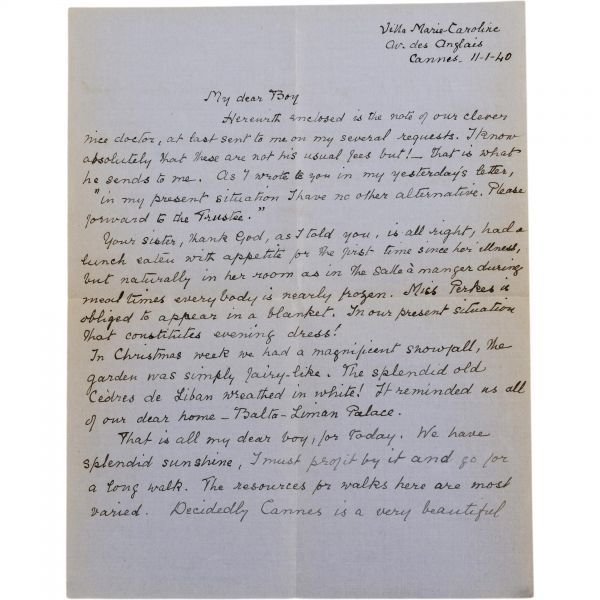 Villa Marie-Caroline
Av. des Anglais
Cannes - 11-1-40
My dear Boy
Herewith enclosed is the note of our clever
nice doctor, at last sent to me on my several requests. I know
absolutely that these are not his usual fees but! - that is what
he sends to me. As I wrote to you in my yesterday's letter,
"in my present situation I have no other alternative. Please
forward to the Trustee."
Your sister, thank God, as I told you, is all right, had a
lunch eaten with appetite for the first time since her illness,
but naturally in her room as in the Salle à manger during
meal times everybody is nearly frozen. Miss Perkes is
obliged to appear in a blanket. In our present situation
that constitutes evening dress!
In Christmas week we had a magnificent snowfall, the
garden was simply fairy-like. The splendid old
Cèdres de Liban wreathed in white! It reminded us all
of our dear home - Balta-Liman Palace.
That is all my dear boy, for today. We have
splendid sunshine, I must profit by it and go for
a long walk. The resources for walks here are most
varied. Decidedly Cannes is a very beautiful